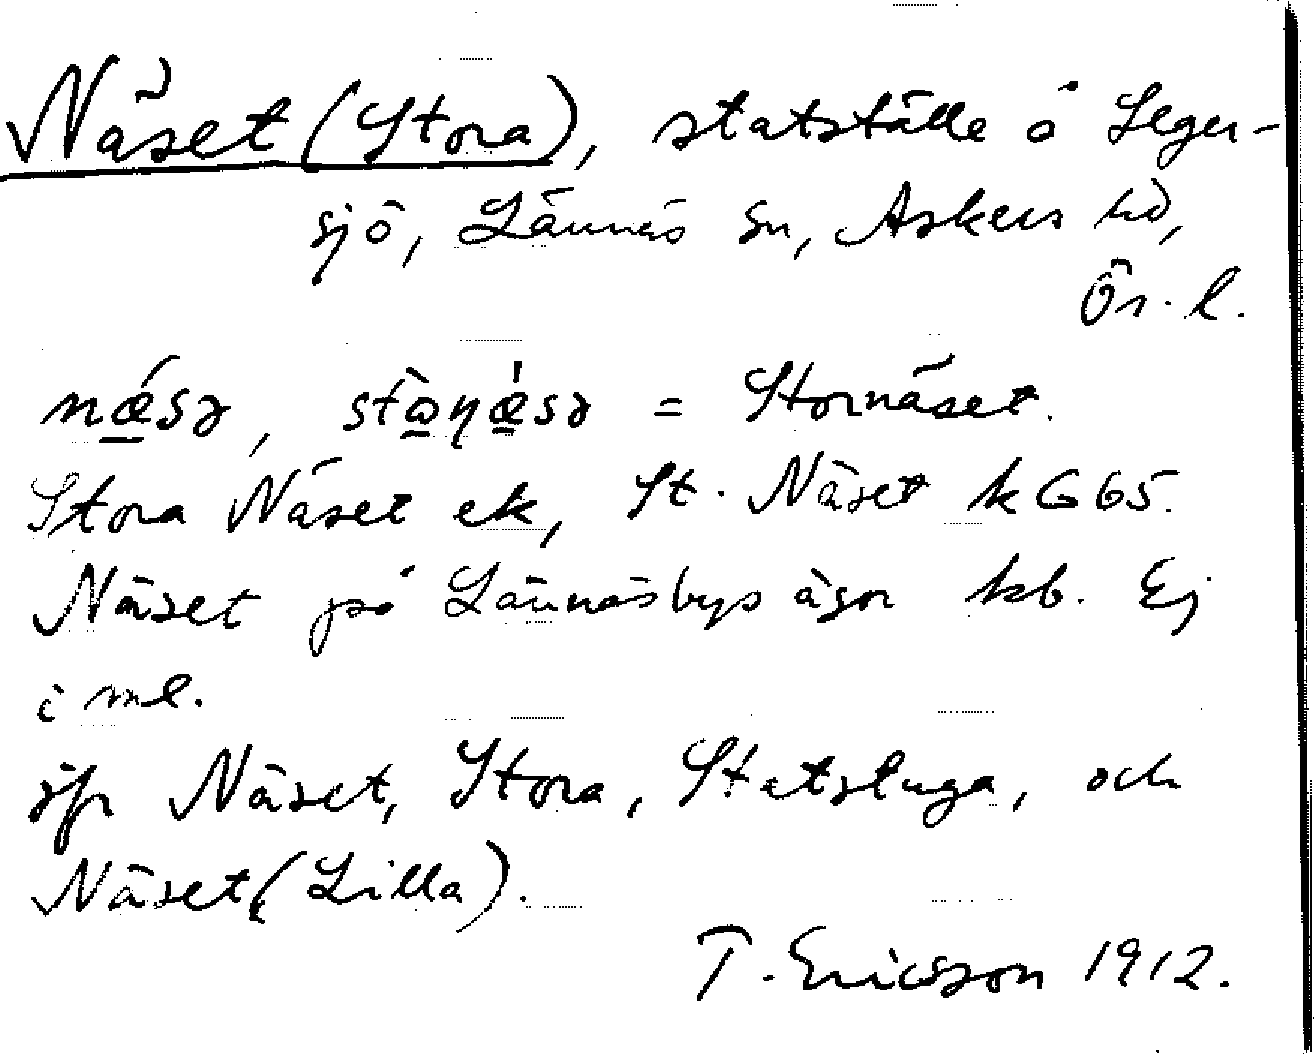 Näset (Stora), statställe å Seger-
sjö, Lännäs sn, Askers hd,
Ör. l.
nǽsǝ, stòɳǽsǝ = Stornäset.
Stora Näset ek, St. Näset k G 65.
Näset på Lännäsbys ägor kb. Ej
i ml.
jfr Näset, Stora, Statstuga, och
Näset (Lilla).
T. Ericsson 1912.